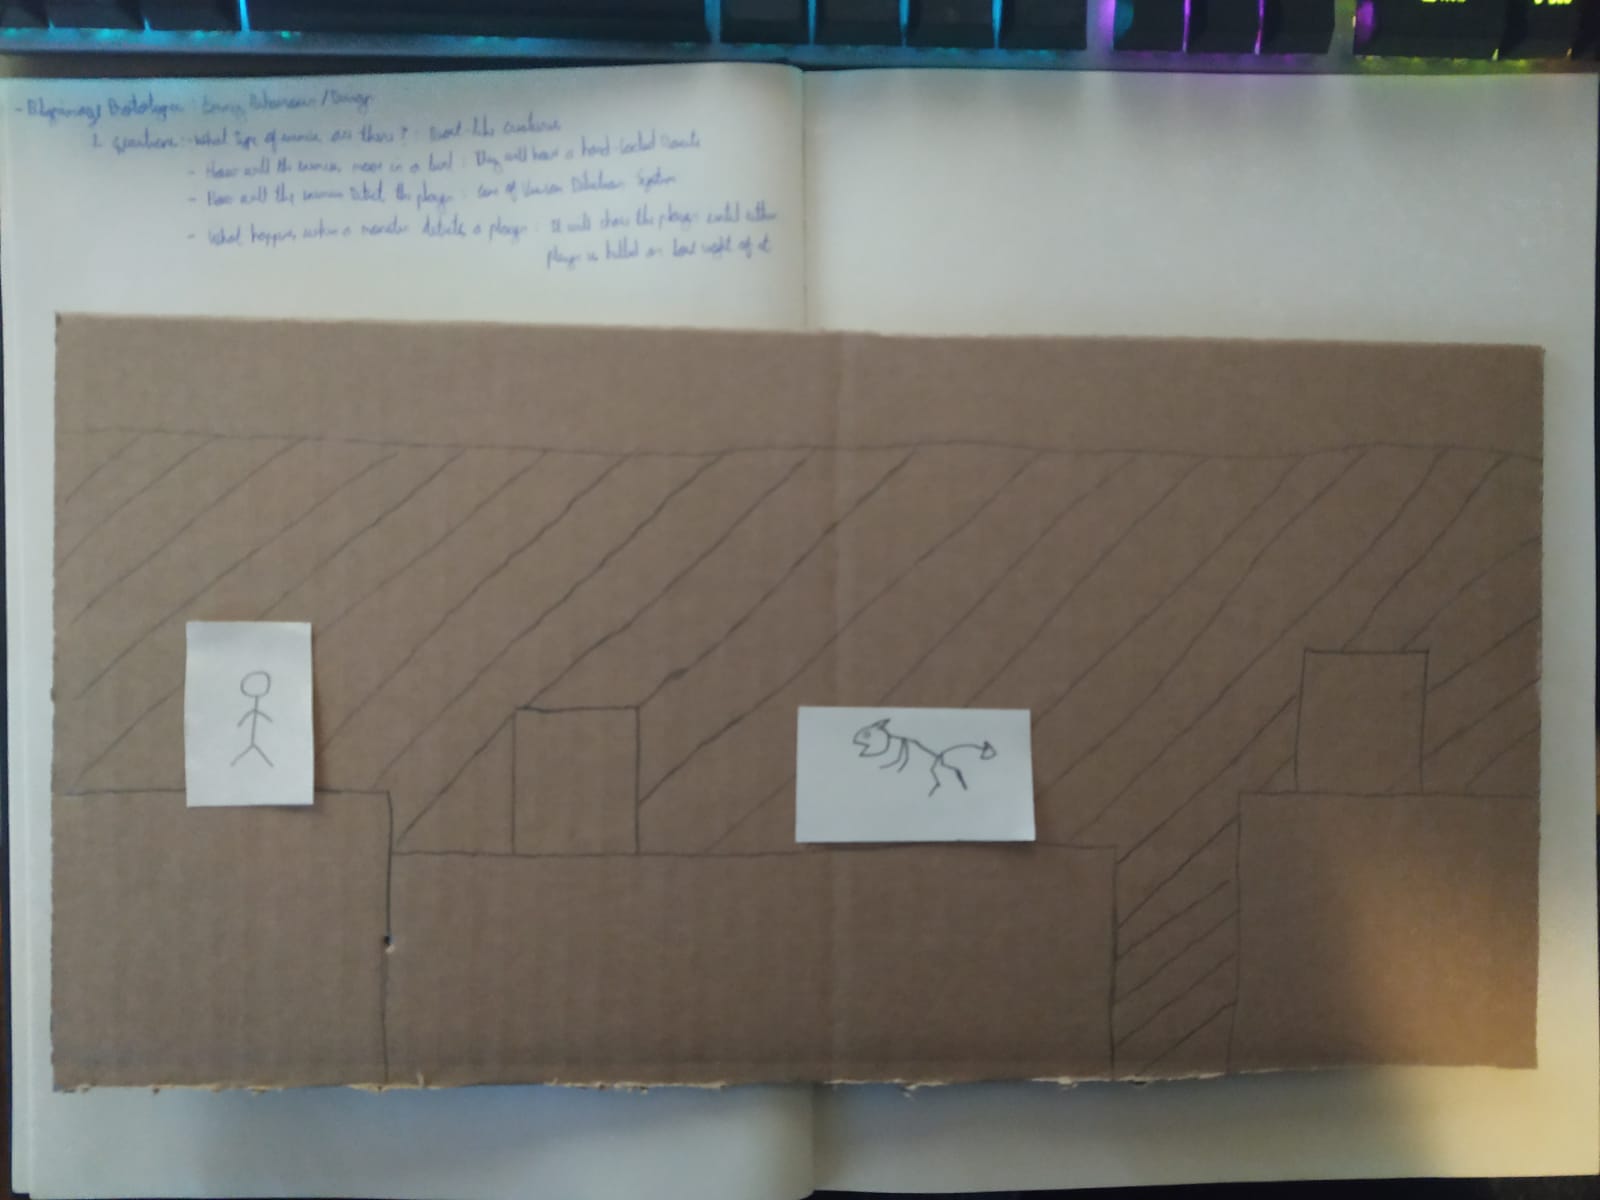 - Pilgrimage Prototype : Enemy Behaviour / Design
1. Questions : - What type of enemies are there? : Beast-like Creatures
- How will the enemies move in a level : They will have a hard-coded route
- How will the enemies detect the player : Cone of Vision Detection System
- What happens when a monster detects a player : It will chase the player until either
player is killed or lose sight of it